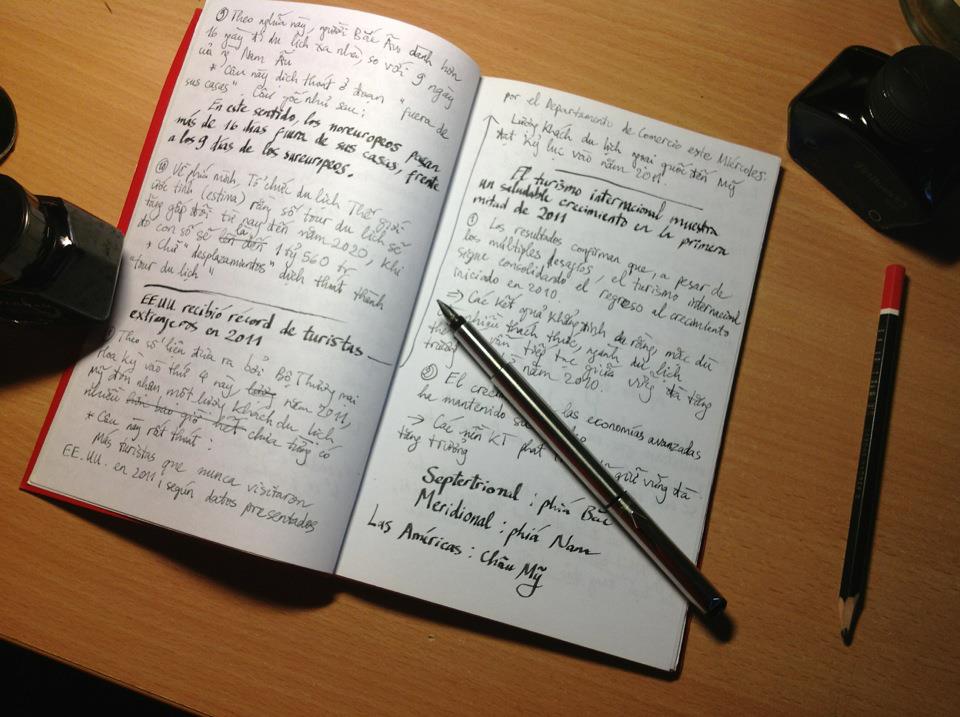 ③ Theo nghĩa này, người Bắc Âu dành hơn
16 ngày đi du lịch xa nhà, so với 9 ngày
của ở Nam Âu
* Câu này dịch thoát ở đoạn "fuera de
sus casas". Câu gốc như sau:
En este sentido, los noreuropeos pasan
más de 16 días fuera de sus casas, frente
a los 9 días de los sureuropeos.
④ Về phía mình, Tổ chức du lịch Thế giới
ước tính (estima) rằng số tour du lịch sẽ
tăng gấp đôi từ nay đến năm 2020, khi
đó con số sẽ lên đến là 1 tỷ 560 tr
* Chữ "desplazamientos" dịch thoát thành
"tour du lịch"
EE.UU. recibió récord de turistas
extranjeros en 2011
Theo số liệu đưa ra bởi Bộ Thương mại
Hoa Kỳ vào thứ 4 này, năm 2011,
Mỹ đón nhận một lượng khách du lịch
nhiều hơn bao giờ hết chưa từng có
* Câu này rất thoát:
Más turistas que nunca visitaron
EE.UU. en 2011, según datos presentados
por el Departamento de Comercio este Miércoles.
Lượng khách du lịch ngoại quốc đến Mỹ
đạt kỷ lục vào năm 2011.
El turismo internacional muestra
un saludable crecimiento en la primera
mitad de 2011
① Los resultados confirman que, a pesar de
los múltiples desafíos, el turismo internacional
sigue consolidando el regreso al crecimiento
iniciado en 2010
→ Các kết quả khẳng định rằng, mặc dù
nhiều thách thức, ngành du lịch
vẫn tiếp tục giữ vững đà tăng
trưởng năm 2010.
② El las economías avanzadas
ha mantenido
→ Các nền KT phát giữ vững đà
tăng trưởng
Septertrional: phía Bắc
Meridional: phía Nam
Las Américas: Châu Mỹ